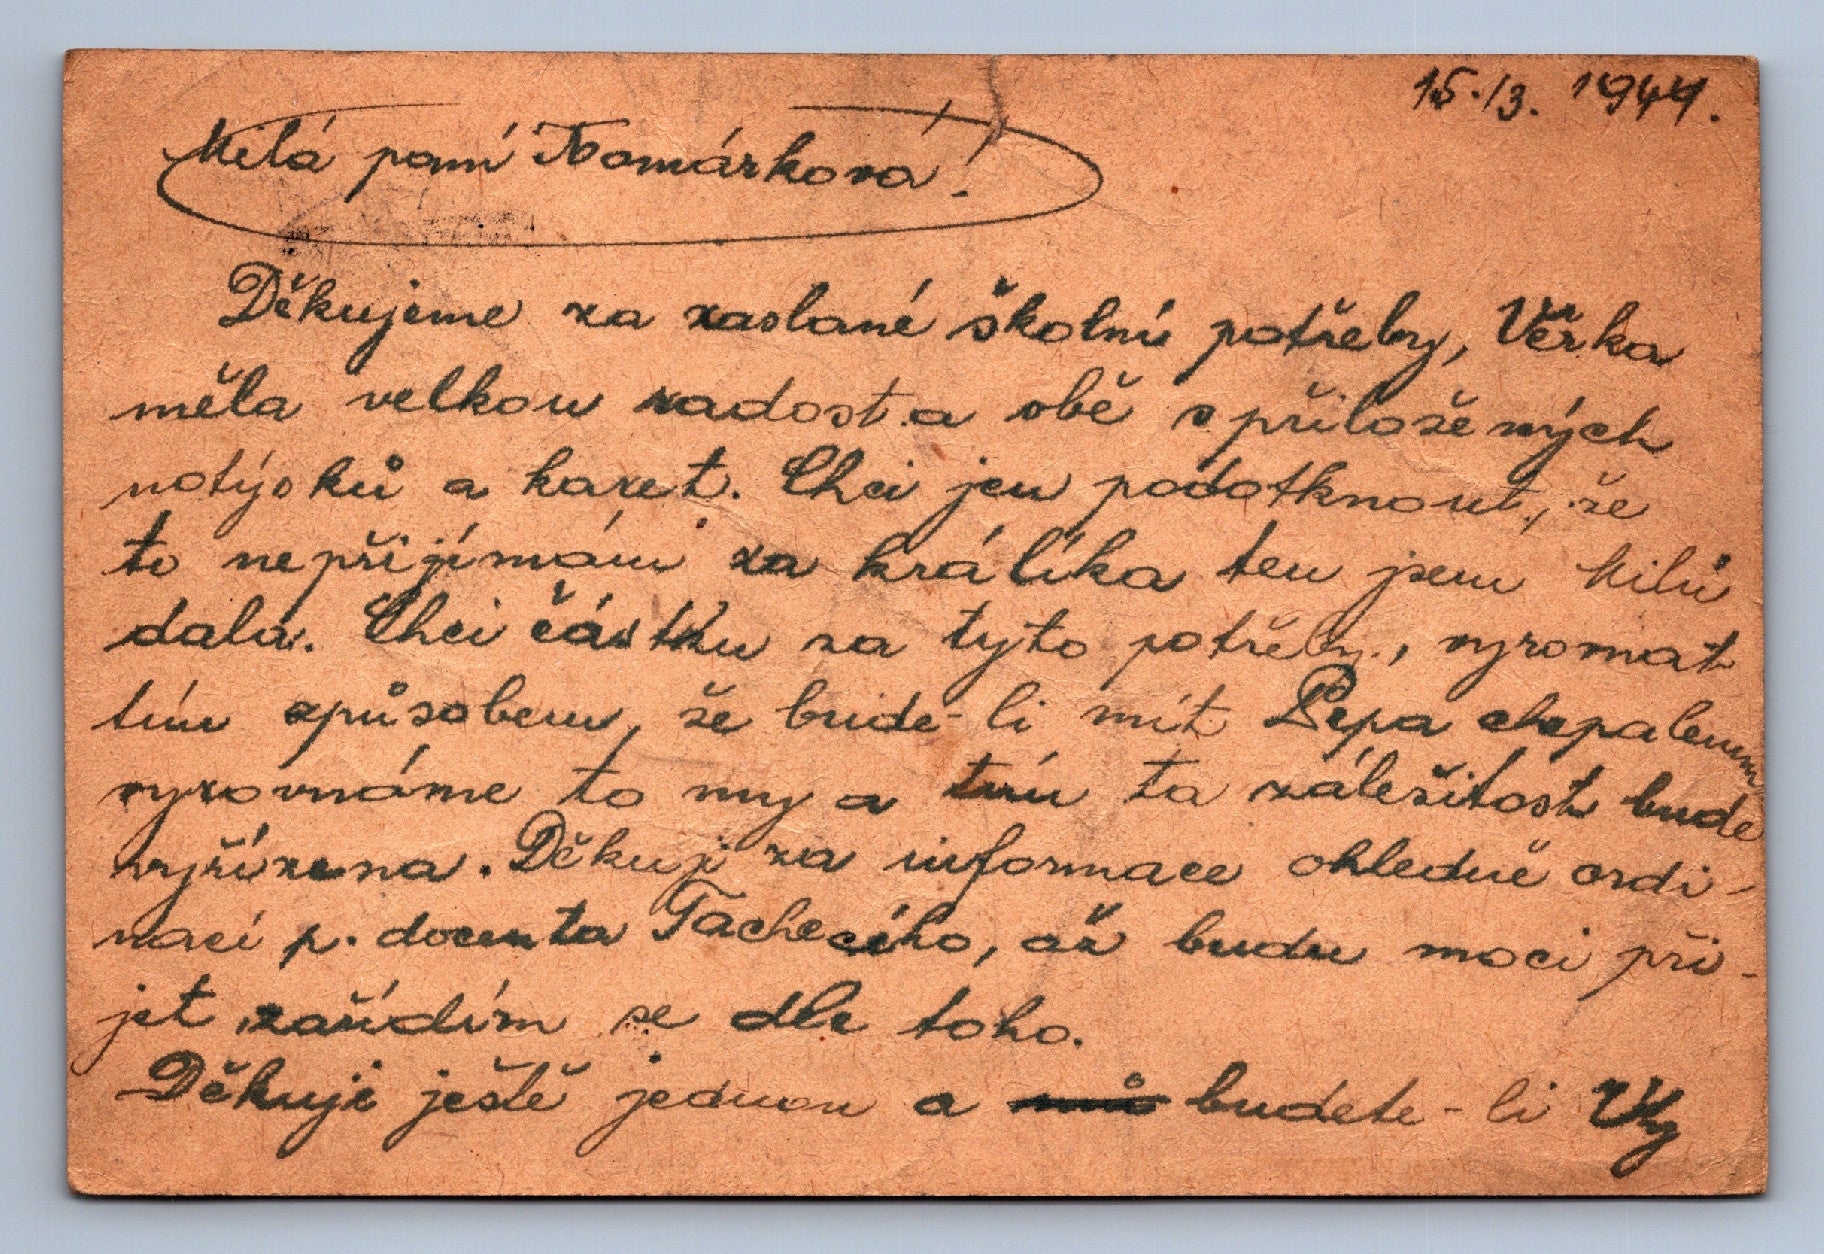 15./3. 1944.
Milá paní Tomárková!
Děkujeme za zaslané školní potřeby, Věrka
měla velkou radost a obě s přiložených
notýsků a karet. Chci jen podotknout, že
to nepřijímám za králíka ten jsem Milú
dala. Chci částku za tyto potřeby, vyrovnat
tím způsobem, že bude-li mít Pepa
vyrovnáme to my a tím ta záležitost bude
vyřízena. Děkuji za informace ohledně ordi-
nací p. docenta Tacheciho, až budu moci při-
jet zařídím se dle toho.
Děkuji ještě jednou a budete-li Vy